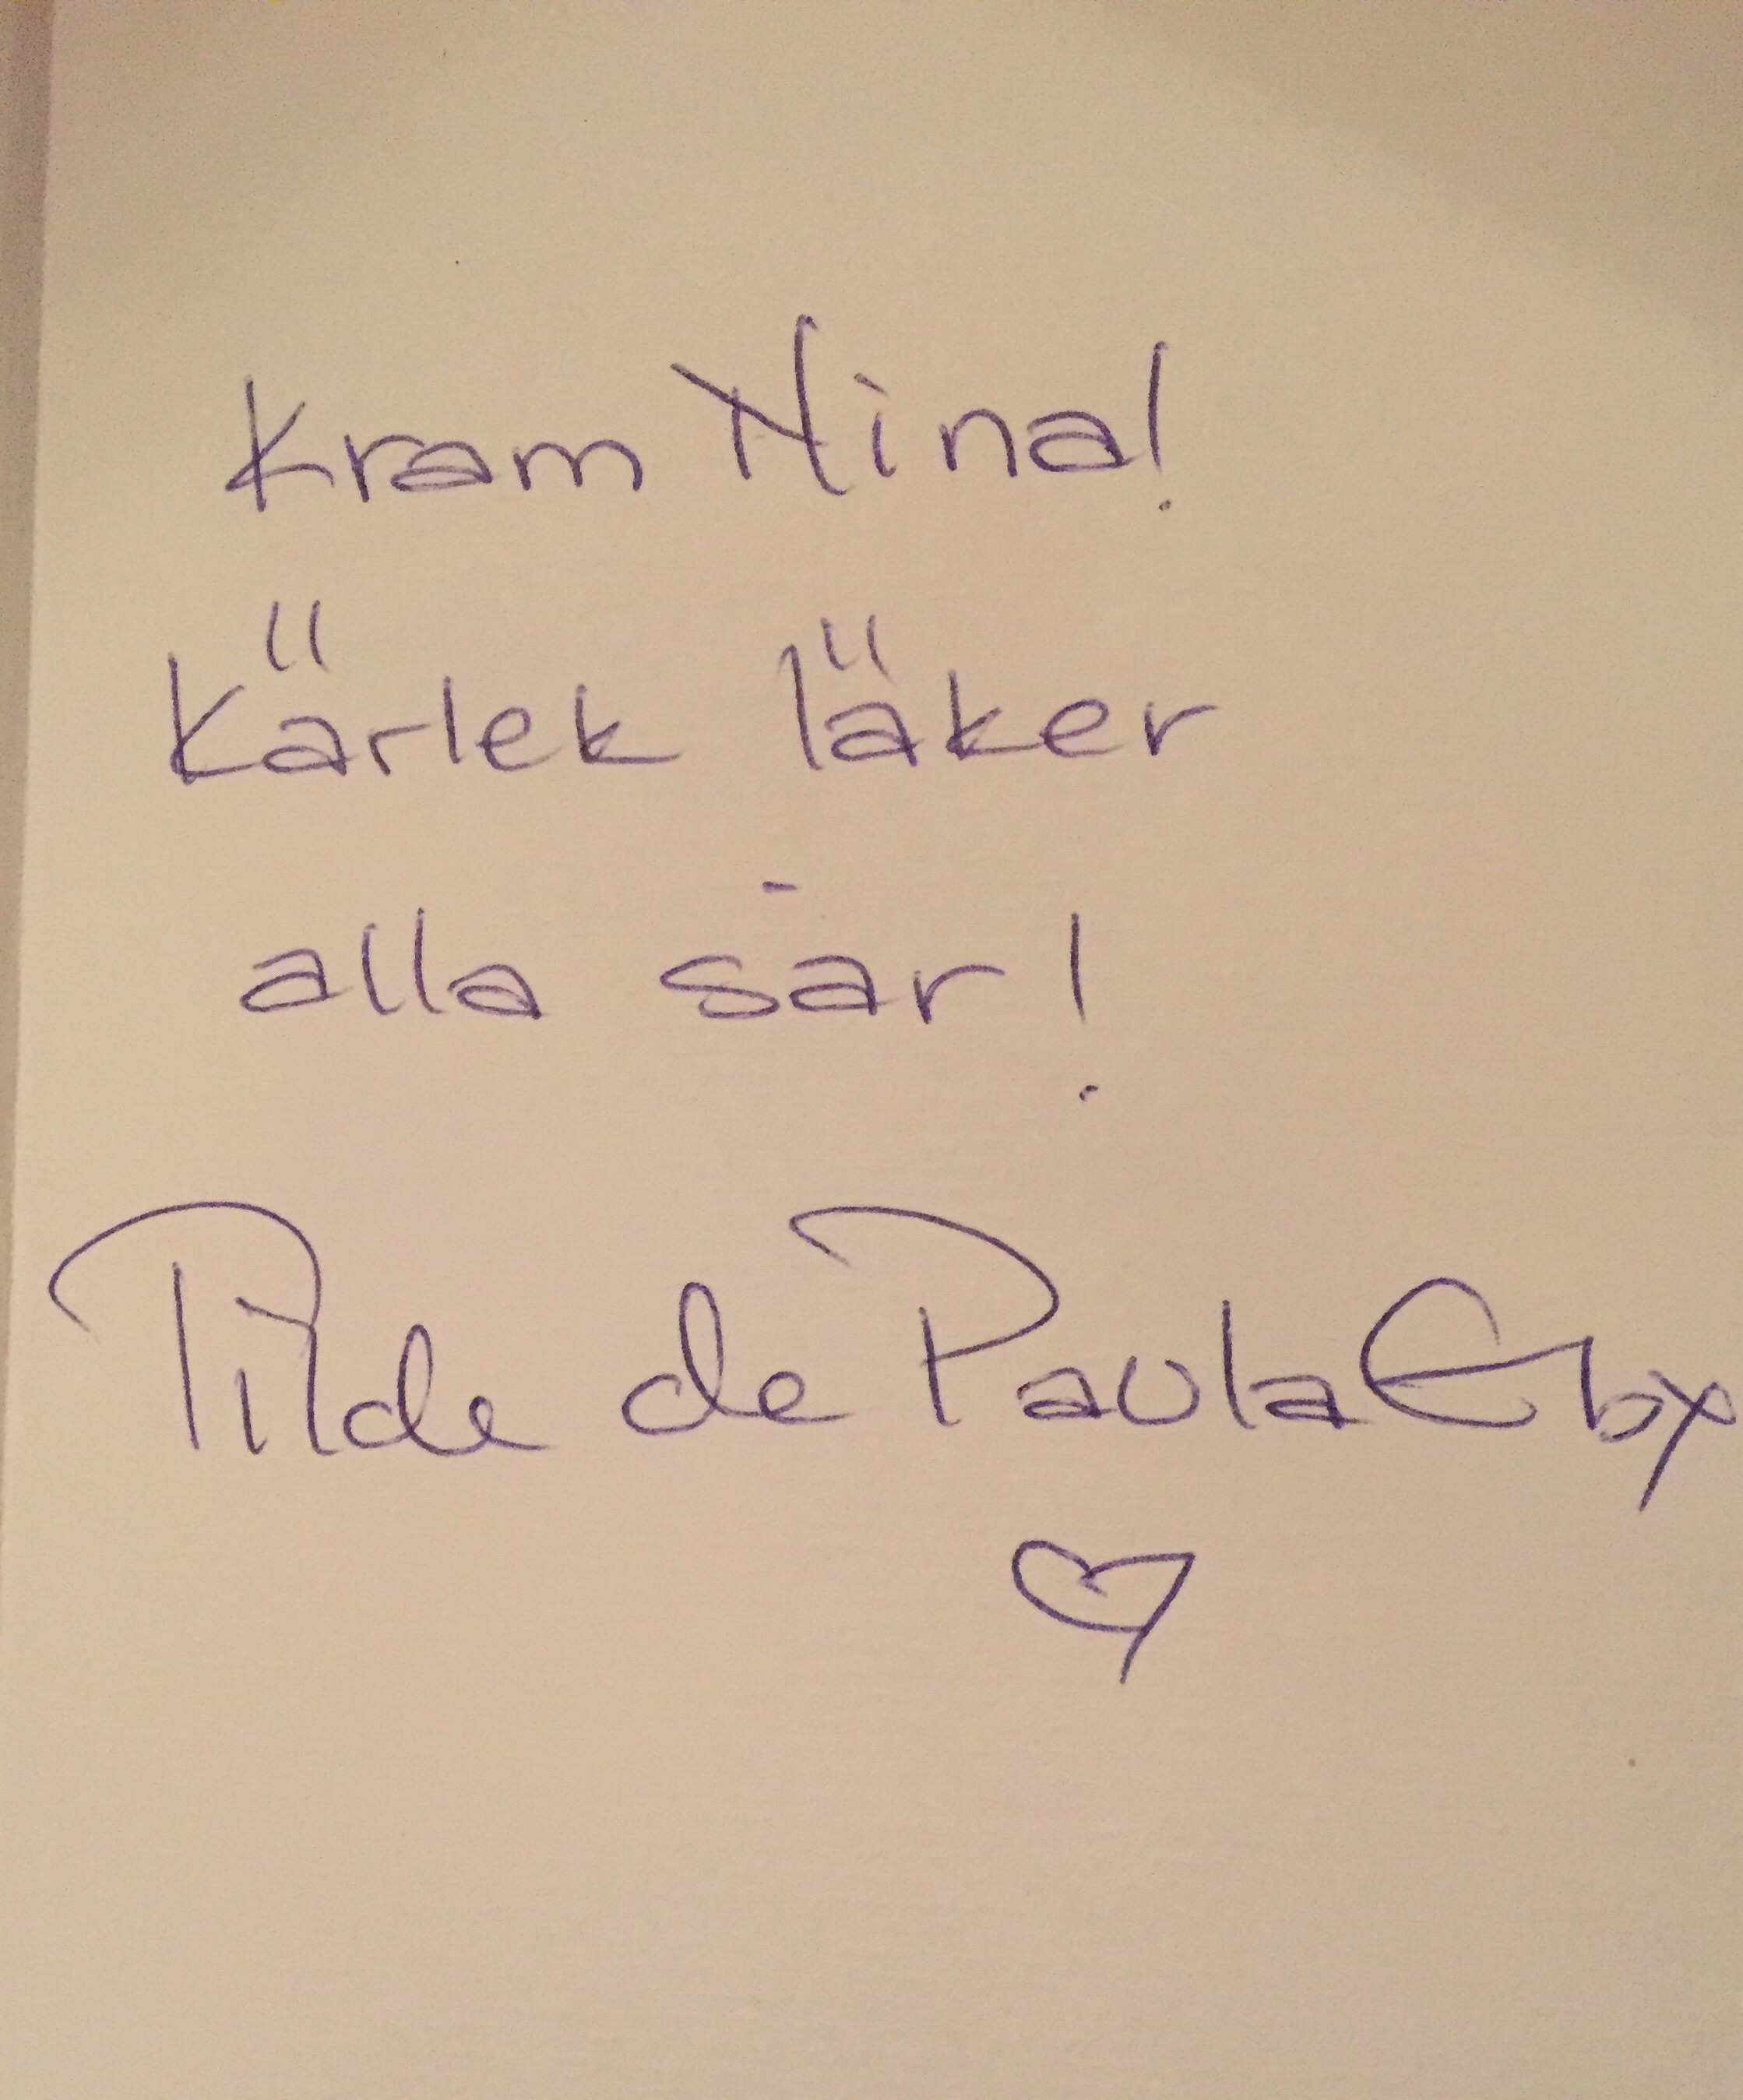 Kram Nina!
Kärlek läker
alla sår!
Tilde de Paula Eby